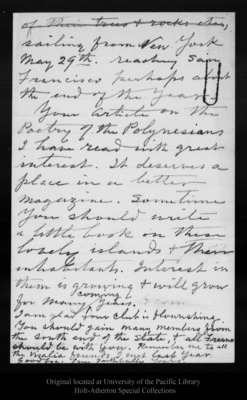 of their trees & rocks etc,
sailing from New York
May 29th. reaching San
Francisco perhaps about
the end of the year.
Your article on the
Poetry of the Polynesians
I have read with great
interest. It deserves a
place in a better
magazine. Sometime
you should write
a little book on these
lovely islands & their
inhabitants. Interest in
them is growing & will grow
coming
for many years.
I am glad your club is flourishing.
You should gain many members from
the south end of the State, & all Fresno
should be with you. Remember me to all
the friends I met last year.
Goodbye. Faithfully Yours
Original located at University of the Pacific Library
Holt-Atherton Special Collections